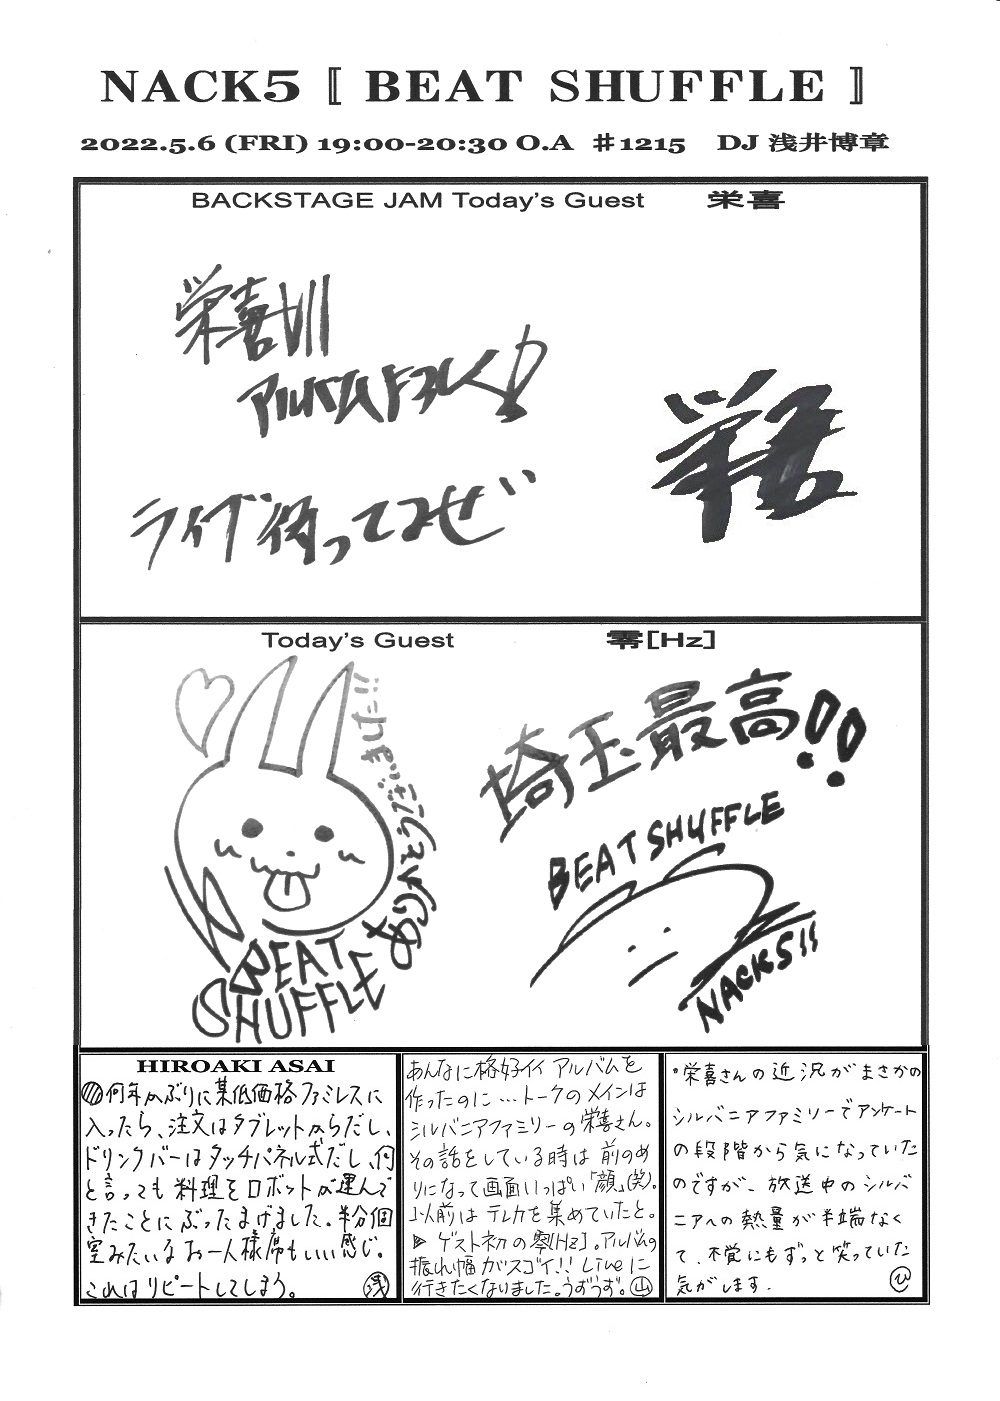 NACK5 〚 BEAT SHUFFLE 〛
2022.5.6 (FRI) 19:00-20:30 O.A ＃1215 DJ 浅井博章
BACKSTAGE JAM Today's Guest 栄喜
栄喜
アルバム
ライブ待ってるぜ
栄喜
Today's Guest 零[Hz]
BEAT
SHUFFLE
埼玉最高!!
BEAT SHUFFLE
NACK5!!
HIROAKI ASAI
何年かぶりに某低価格ファミレスに
入ったら、注文はタブレットからだし、
ドリンクバーはタッチパネル式だし、何
と言っても料理をロボットが運んで
きたことにぶったまげました。半分個
室みたいなお一人様席もいい感じ。
これはリピートしてしまう。 浅
あんなに格好イイ アルバムを
作ったのに…トークのメインは
シルバニアファミリーの栄喜さん。
その話をしている時は 前のめ
りになって画面いっぱい「顔」(笑)。
以前は テレカを集めていたと。
▶ ゲスト初の零[Hz]。アルバムの
振れ幅がスゴイ!! Liveに
行きたくなりました。うずうず。 山
・栄喜さんの近況がまさかの
シルバニアファミリーでアンケート
の段階から気になっていた
のですが、放送中のシルバ
ニアへの熱量が半端なく
て、不覚にもずっと笑っていた
気がします。 ひ